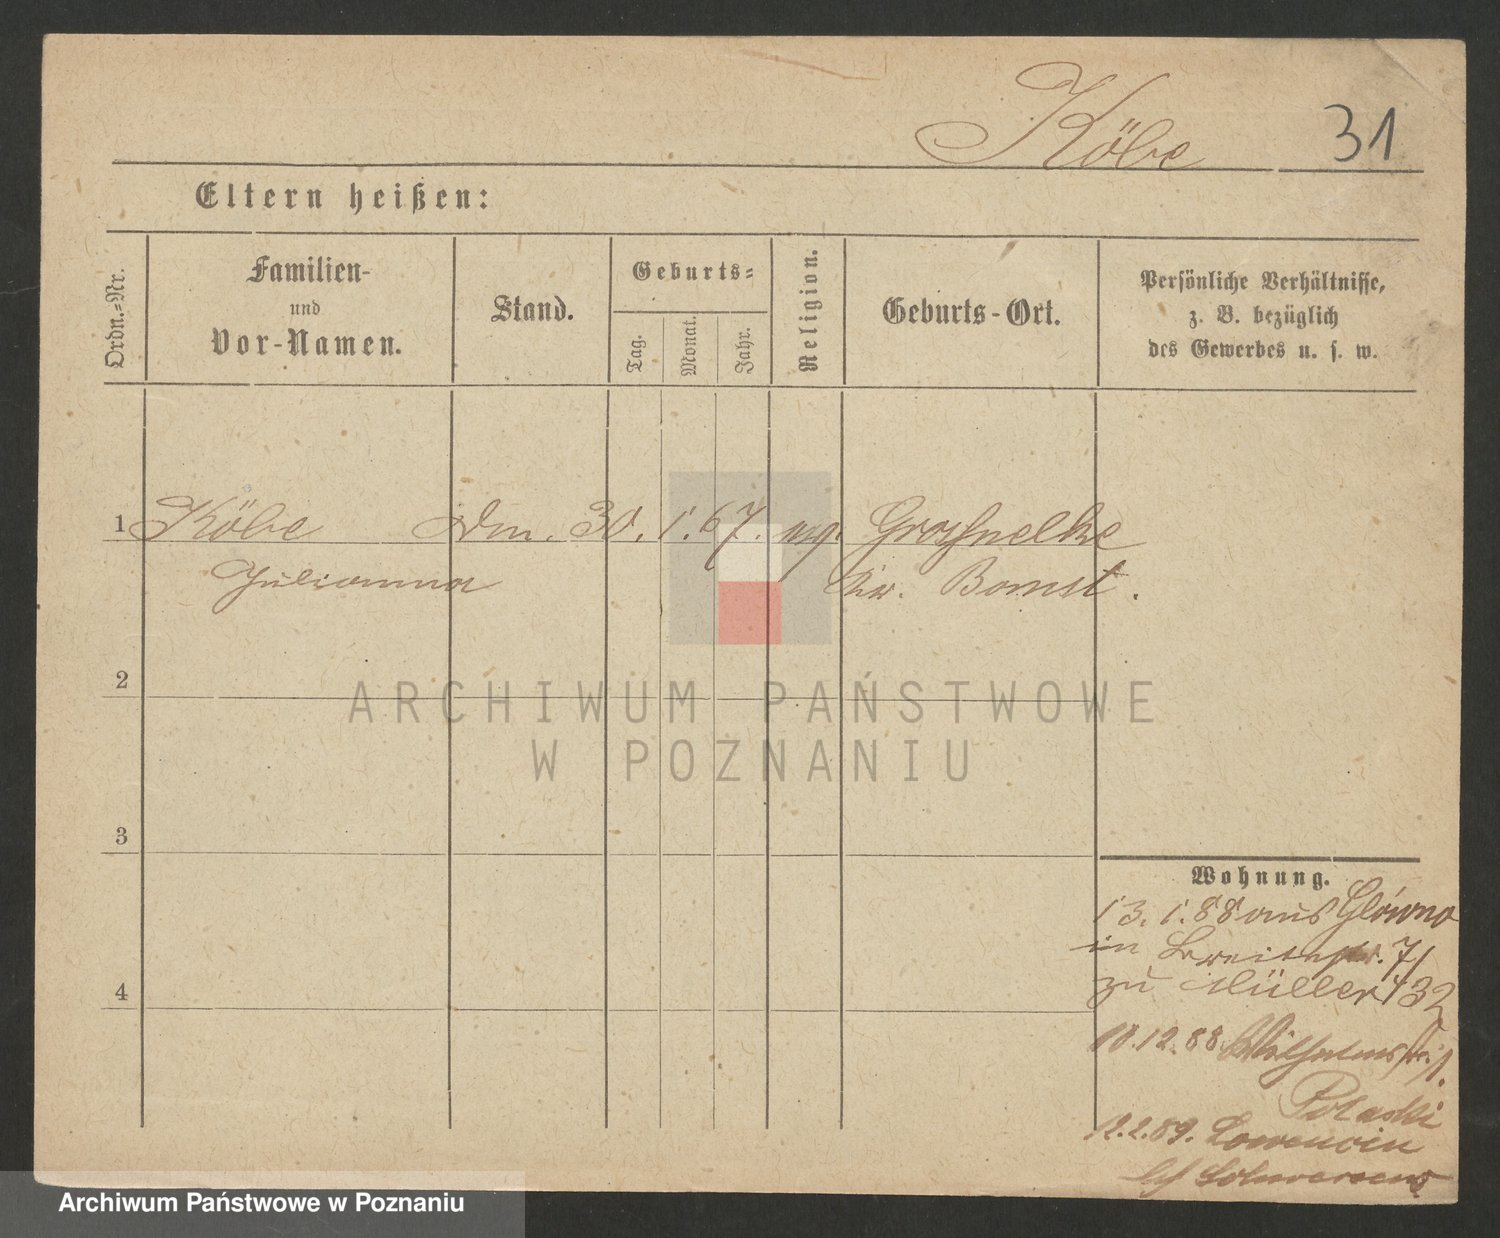 Köbe 31
Eltern heißen:
Ordn.-Nr.
Familien-
und
Vor-Namen.
Stand.
Geburts-
Tag.
Monat.
Jahr.
Religion.
Geburts-Ort.
Persönliche Verhältnisse,
z. B. bezüglich
des Gewerbes u. s. w.
1 Köbe Dm. 30. 1. 67. evg.
Julianna Kr. Bomst.
2
ARCHIWUM PAŃSTWOWE
W POZNANIU
3
Wohnung.
13. 1. 88 aus Glowno
in Breitestr. 7/
zu Müller 132
4
10.12.88 Wilhelmstr. 1.
12.2.89.
Schwersenz
Archiwum Państwowe w Poznaniu